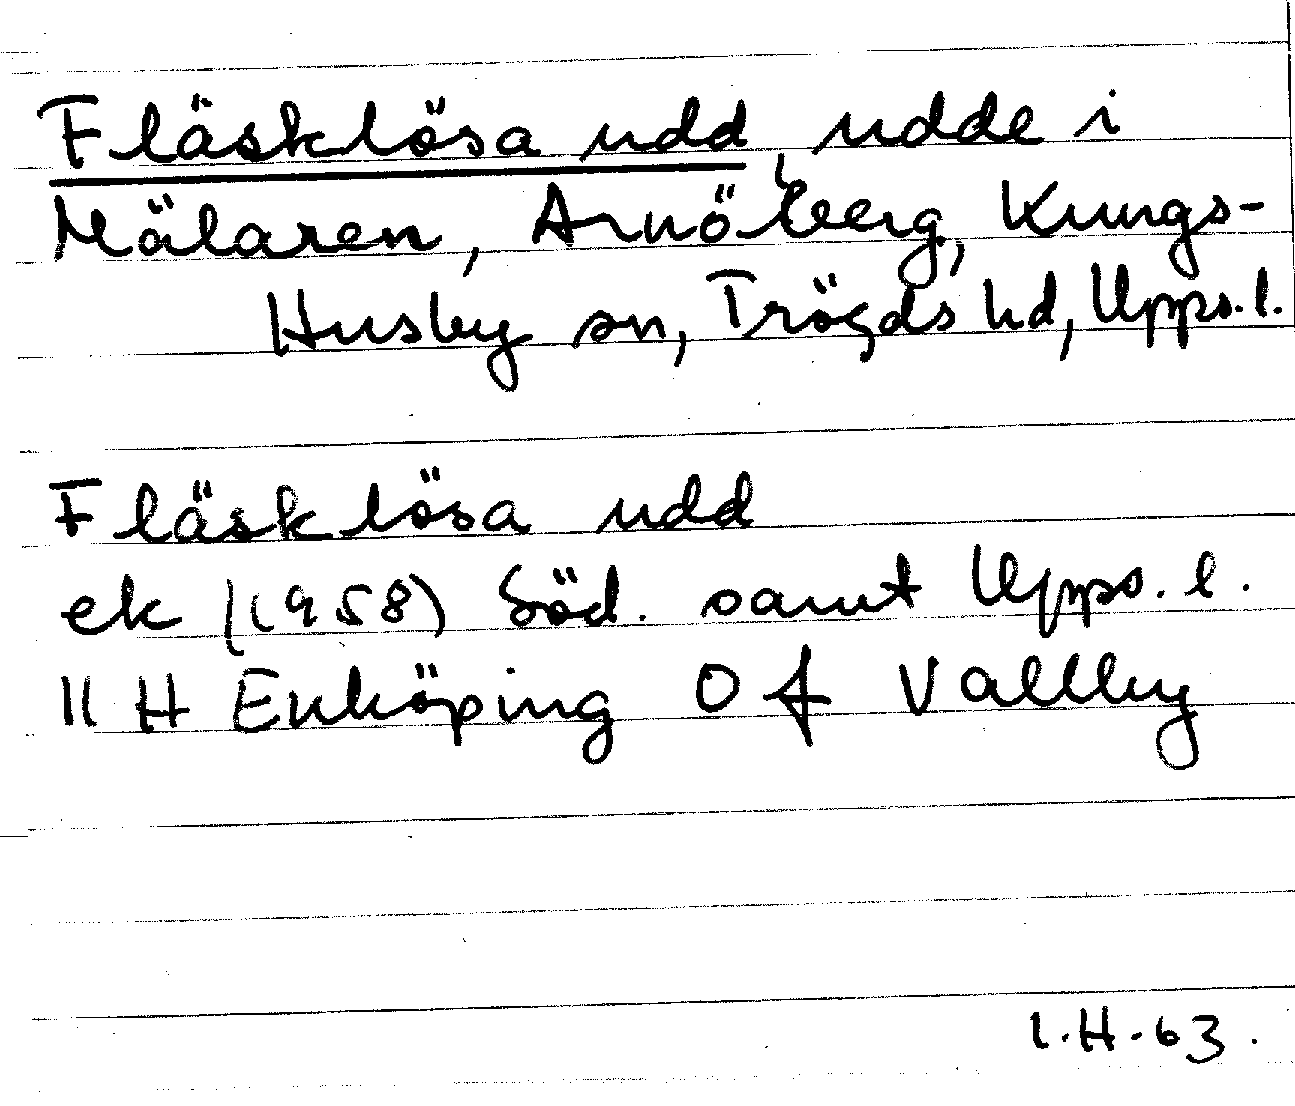 Fläsklösa udd, udde i
Mälaren, Arnöberg, Kungs-
Husby sn, Trögds hd, Upps. l.
Fläsklösa udd
ek (1958) Söd. samt Upps. l.
11 H Enköping O f Vallby
I.H. 63.